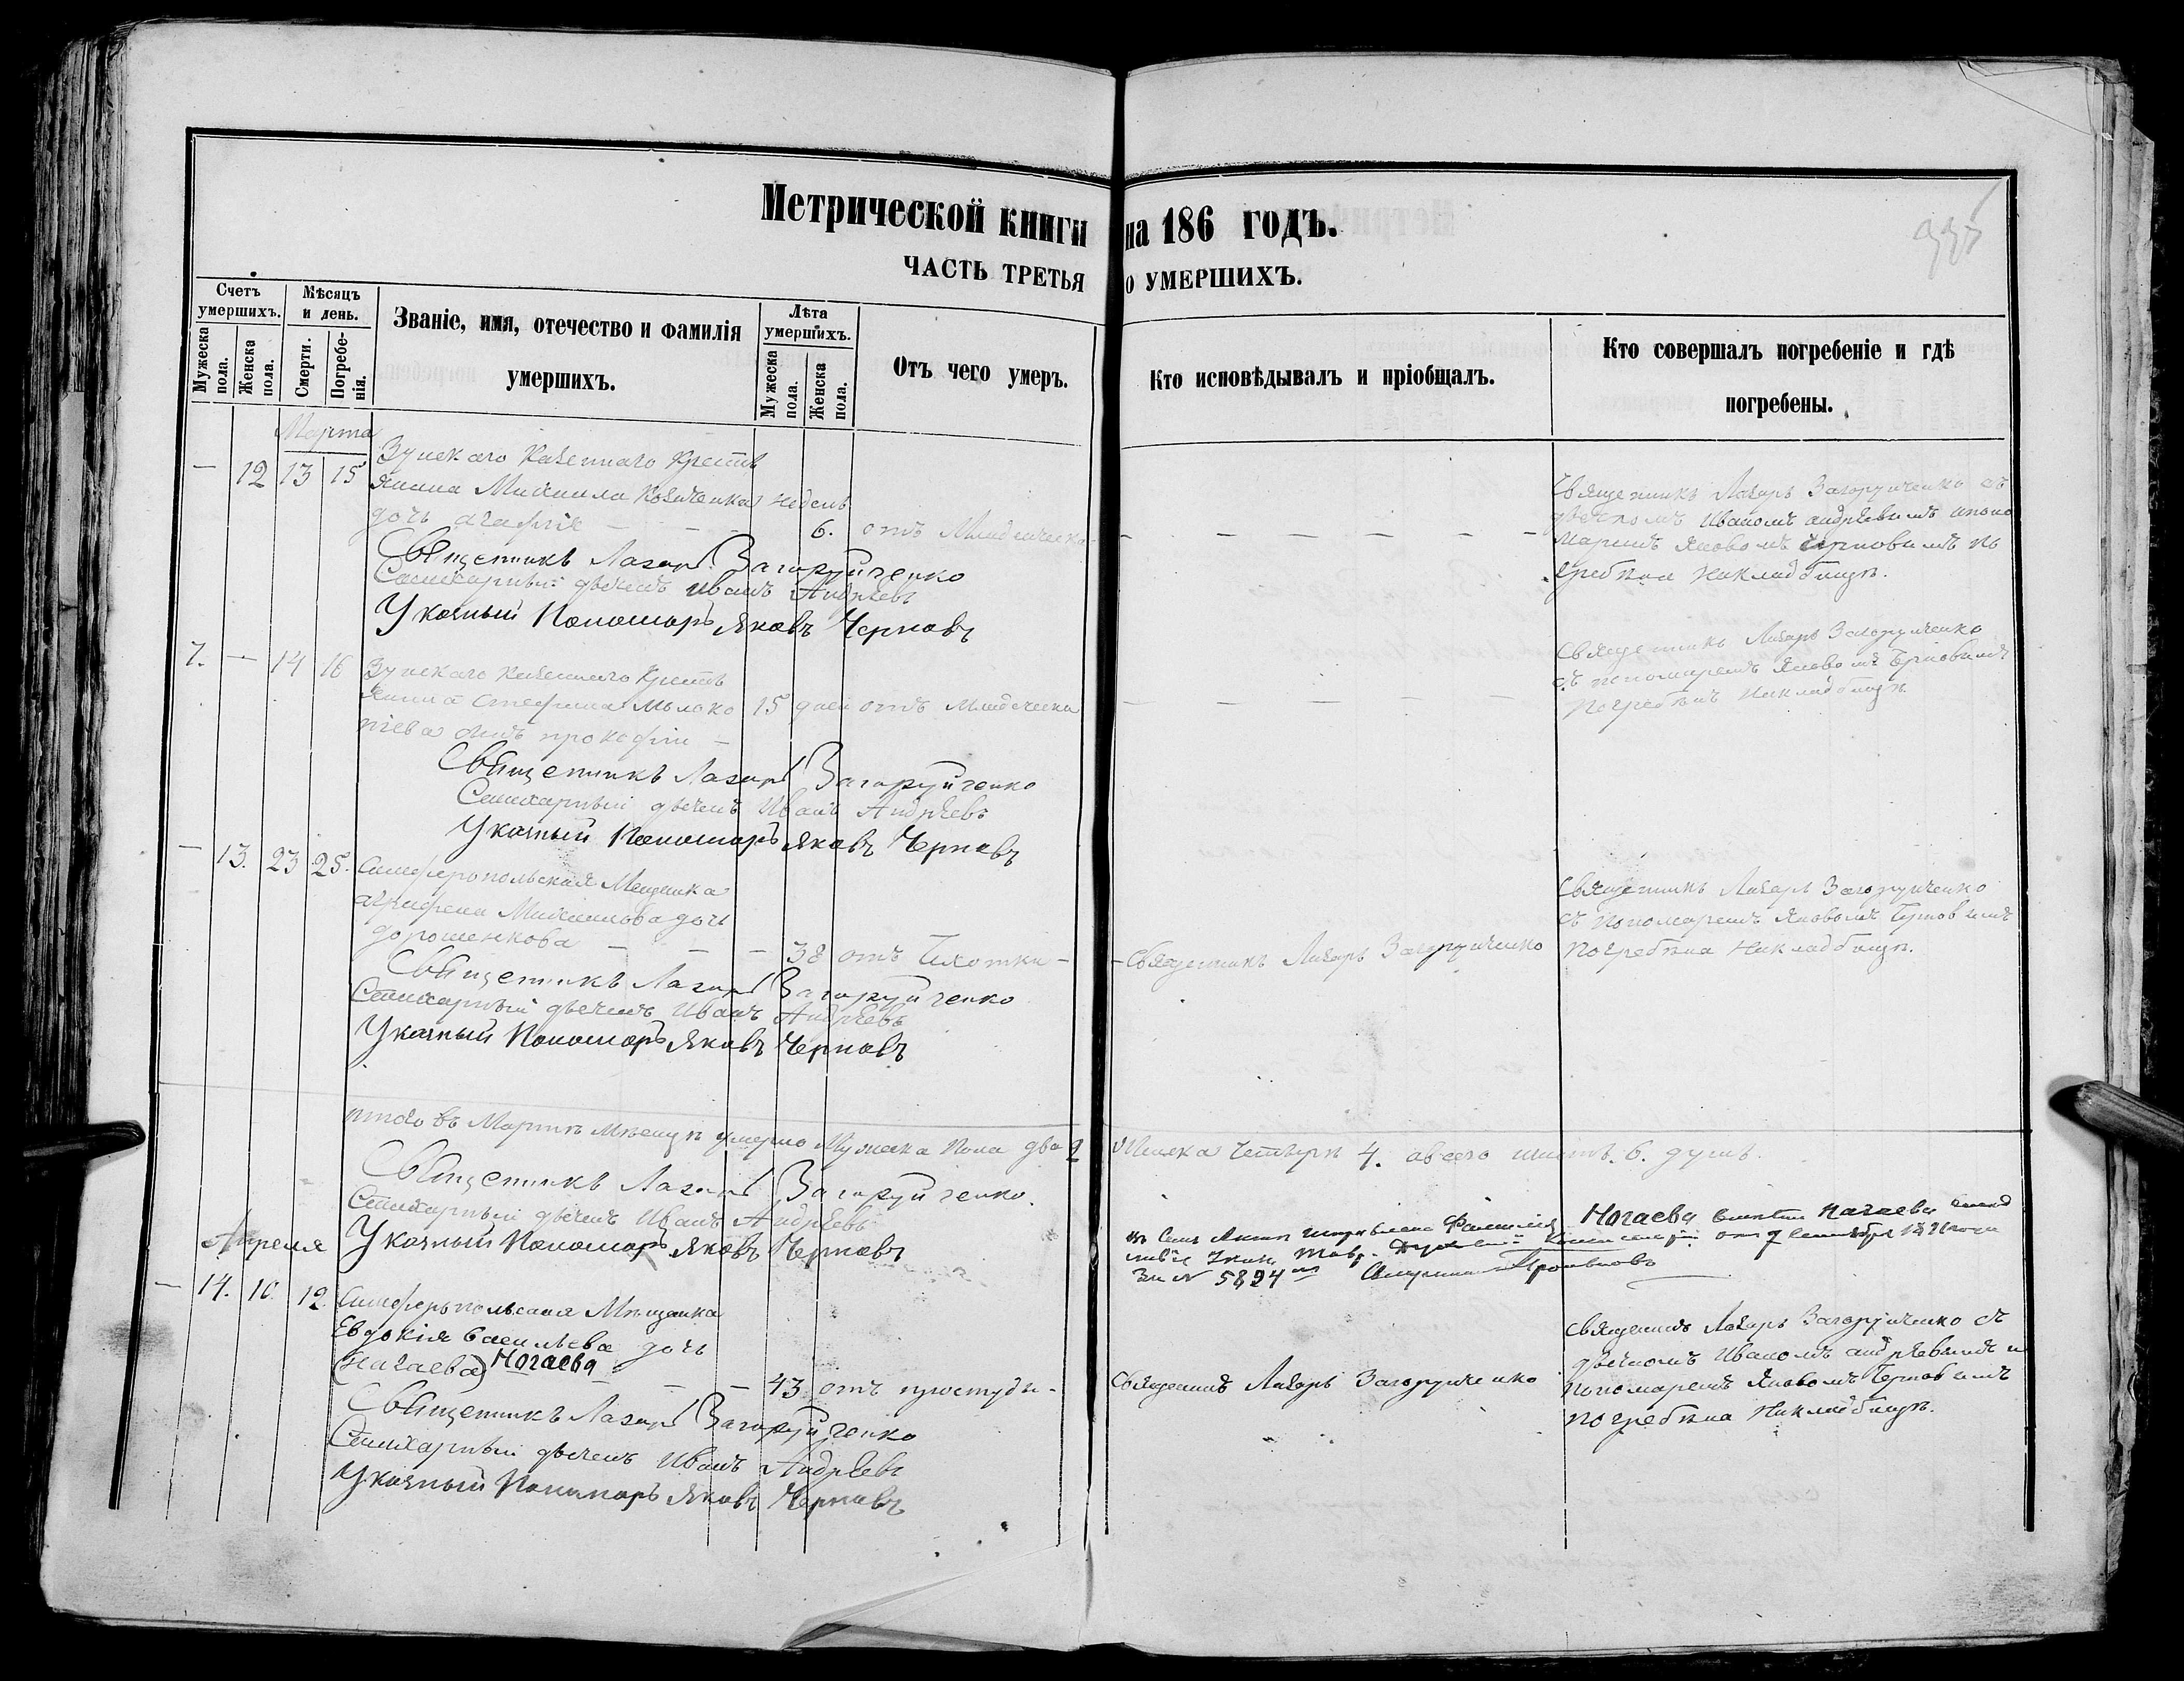 Метрической книги на 186 годъ.
ЧАСТЬ ТРЕТЬЯ О УМЕРШИХЪ.
Счетъ умершихъ.
Мужеска пола.
Женска пола.
Мѣсяцъ и день.
Смерти.
Погребенія.
Званіе, имя, отечество и фамилія
умершихъ.
Лѣта умершихъ.
Мужеска пола.
Женска пола.
Отъ чего умеръ.
Кто исповѣдывалъ и пріобщалъ.
Кто совершалъ погребеніе и гдѣ
погребены.
Марта
— 12 13 15
Зуйскаго Казеннаго Кресть
янина Михаила недель
дочь Агафія — — — 6. отъ Младенческа
Священникъ Лазарь Загоруйченко
дьячекъ Иванъ Андрѣевъ
Указный Пономарь Яковъ Черновъ
Священникъ Лазарь Загоруйченко съ
дьячкомъ Иваномъ Андрѣевымъ и поно
маремъ Яковомъ Черновымъ по
гребена на кладбищѣ.
7. — 14 16
Зуйскаго Казеннаго Кресть
янина Стефана Молоко 15 дней отъ Младеческа
сынъ Прокофій —
Священникъ Лазарь Загоруйченко
дьячекъ Иванъ Андрѣевъ
Указный Пономарь Яковъ Черновъ
Священникъ Лазарь Загоруйченко
съ пономаремъ Яковомъ Черновымъ
погребенъ на кладбищѣ
— 13. 23 25.
Симферопольская Мещанка
Агрифена Михаилова дочь
Дорошенкова — — — 38 отъ Чехотки —
Священникъ Лазарь Загоруйченко
дьячекъ Иванъ Андрѣевъ
Указный Пономарь Яковъ Черновъ
— Священникъ Лазарь Загоруйченко
Священникъ Лазарь Загоруйченко
съ пономаремъ Яковомъ Черновымъ
погребена на кладбищѣ.
Итого въ Мартѣ Мѣсяцѣ умерло Мужеска пола два 2 Женска Четыри 4. а всего шесть. 6. душъ.
Священникъ Лазарь Загоруйченко.
дьячекъ Иванъ Андрѣевъ
Указный Пономарь Яковъ Черновъ
фамилія Ногаева вместо Начаева
Тавр. Духовной Консисторіи отъ 7 Сентября
За № 5824
Апреля
— 14. 10. 12.
Симферопольская Мѣщанка
Евдокія Васильева дочь
(Начаева) Ногаева — — — 43 отъ простуды —
Священникъ Лазарь Загоруйченко
дьячекъ Иванъ Андрѣевъ
Указный Пономарь Яковъ Черновъ
Священникъ Лазарь Загоруйченко
Священникъ Лазарь Загоруйченко съ
дьячкомъ Иваномъ Андрѣевымъ и
пономаремъ Яковомъ Черновымъ
погребена на кладбищѣ.